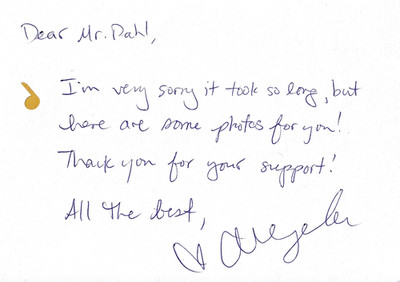 Dear Mr. Dahl,
I'm very sorry it took so long, but
here are some photos for you!
Thank you for your support!
All the best,